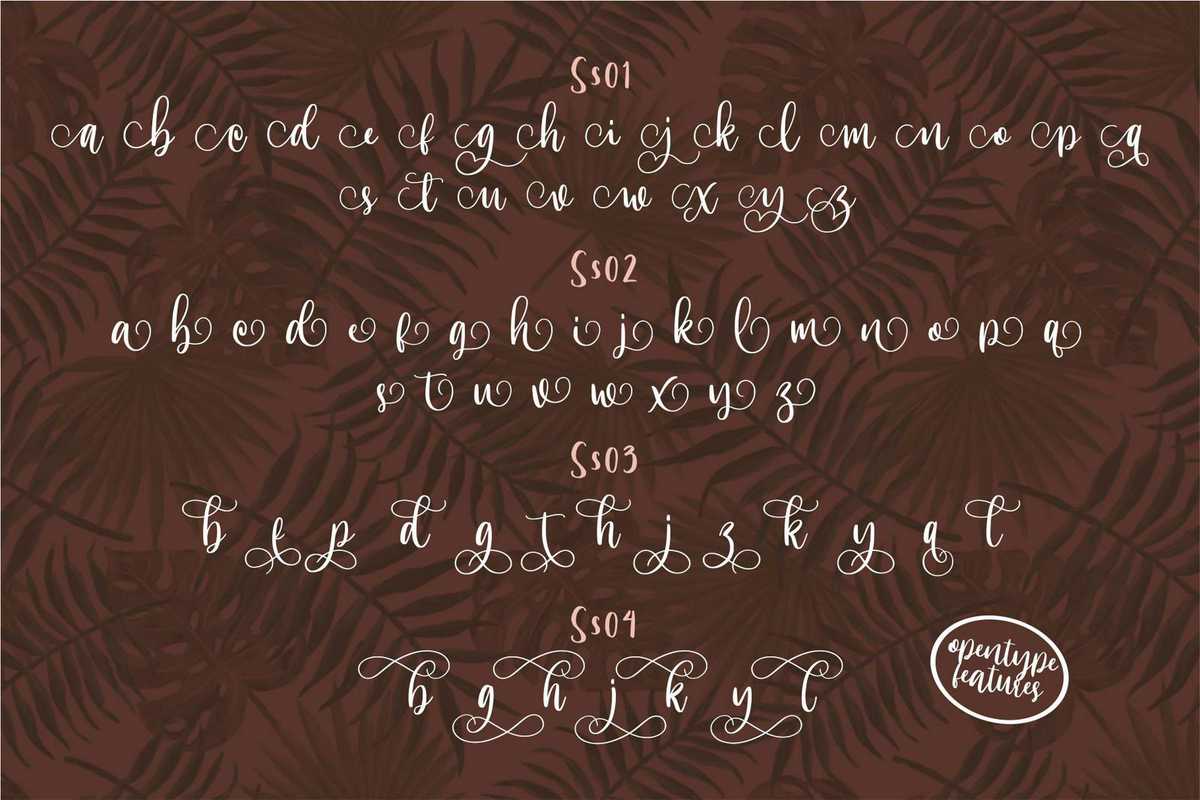 Ss01
a b c d e f g h i j k l m n o p q
s t u v w x y z
Ss02
a b c d e f g h i j k l m n o p q
s t u v w x y z
Ss03
b f p d g t h j z k y q t
Ss04
b g h j k y l
opentype
features